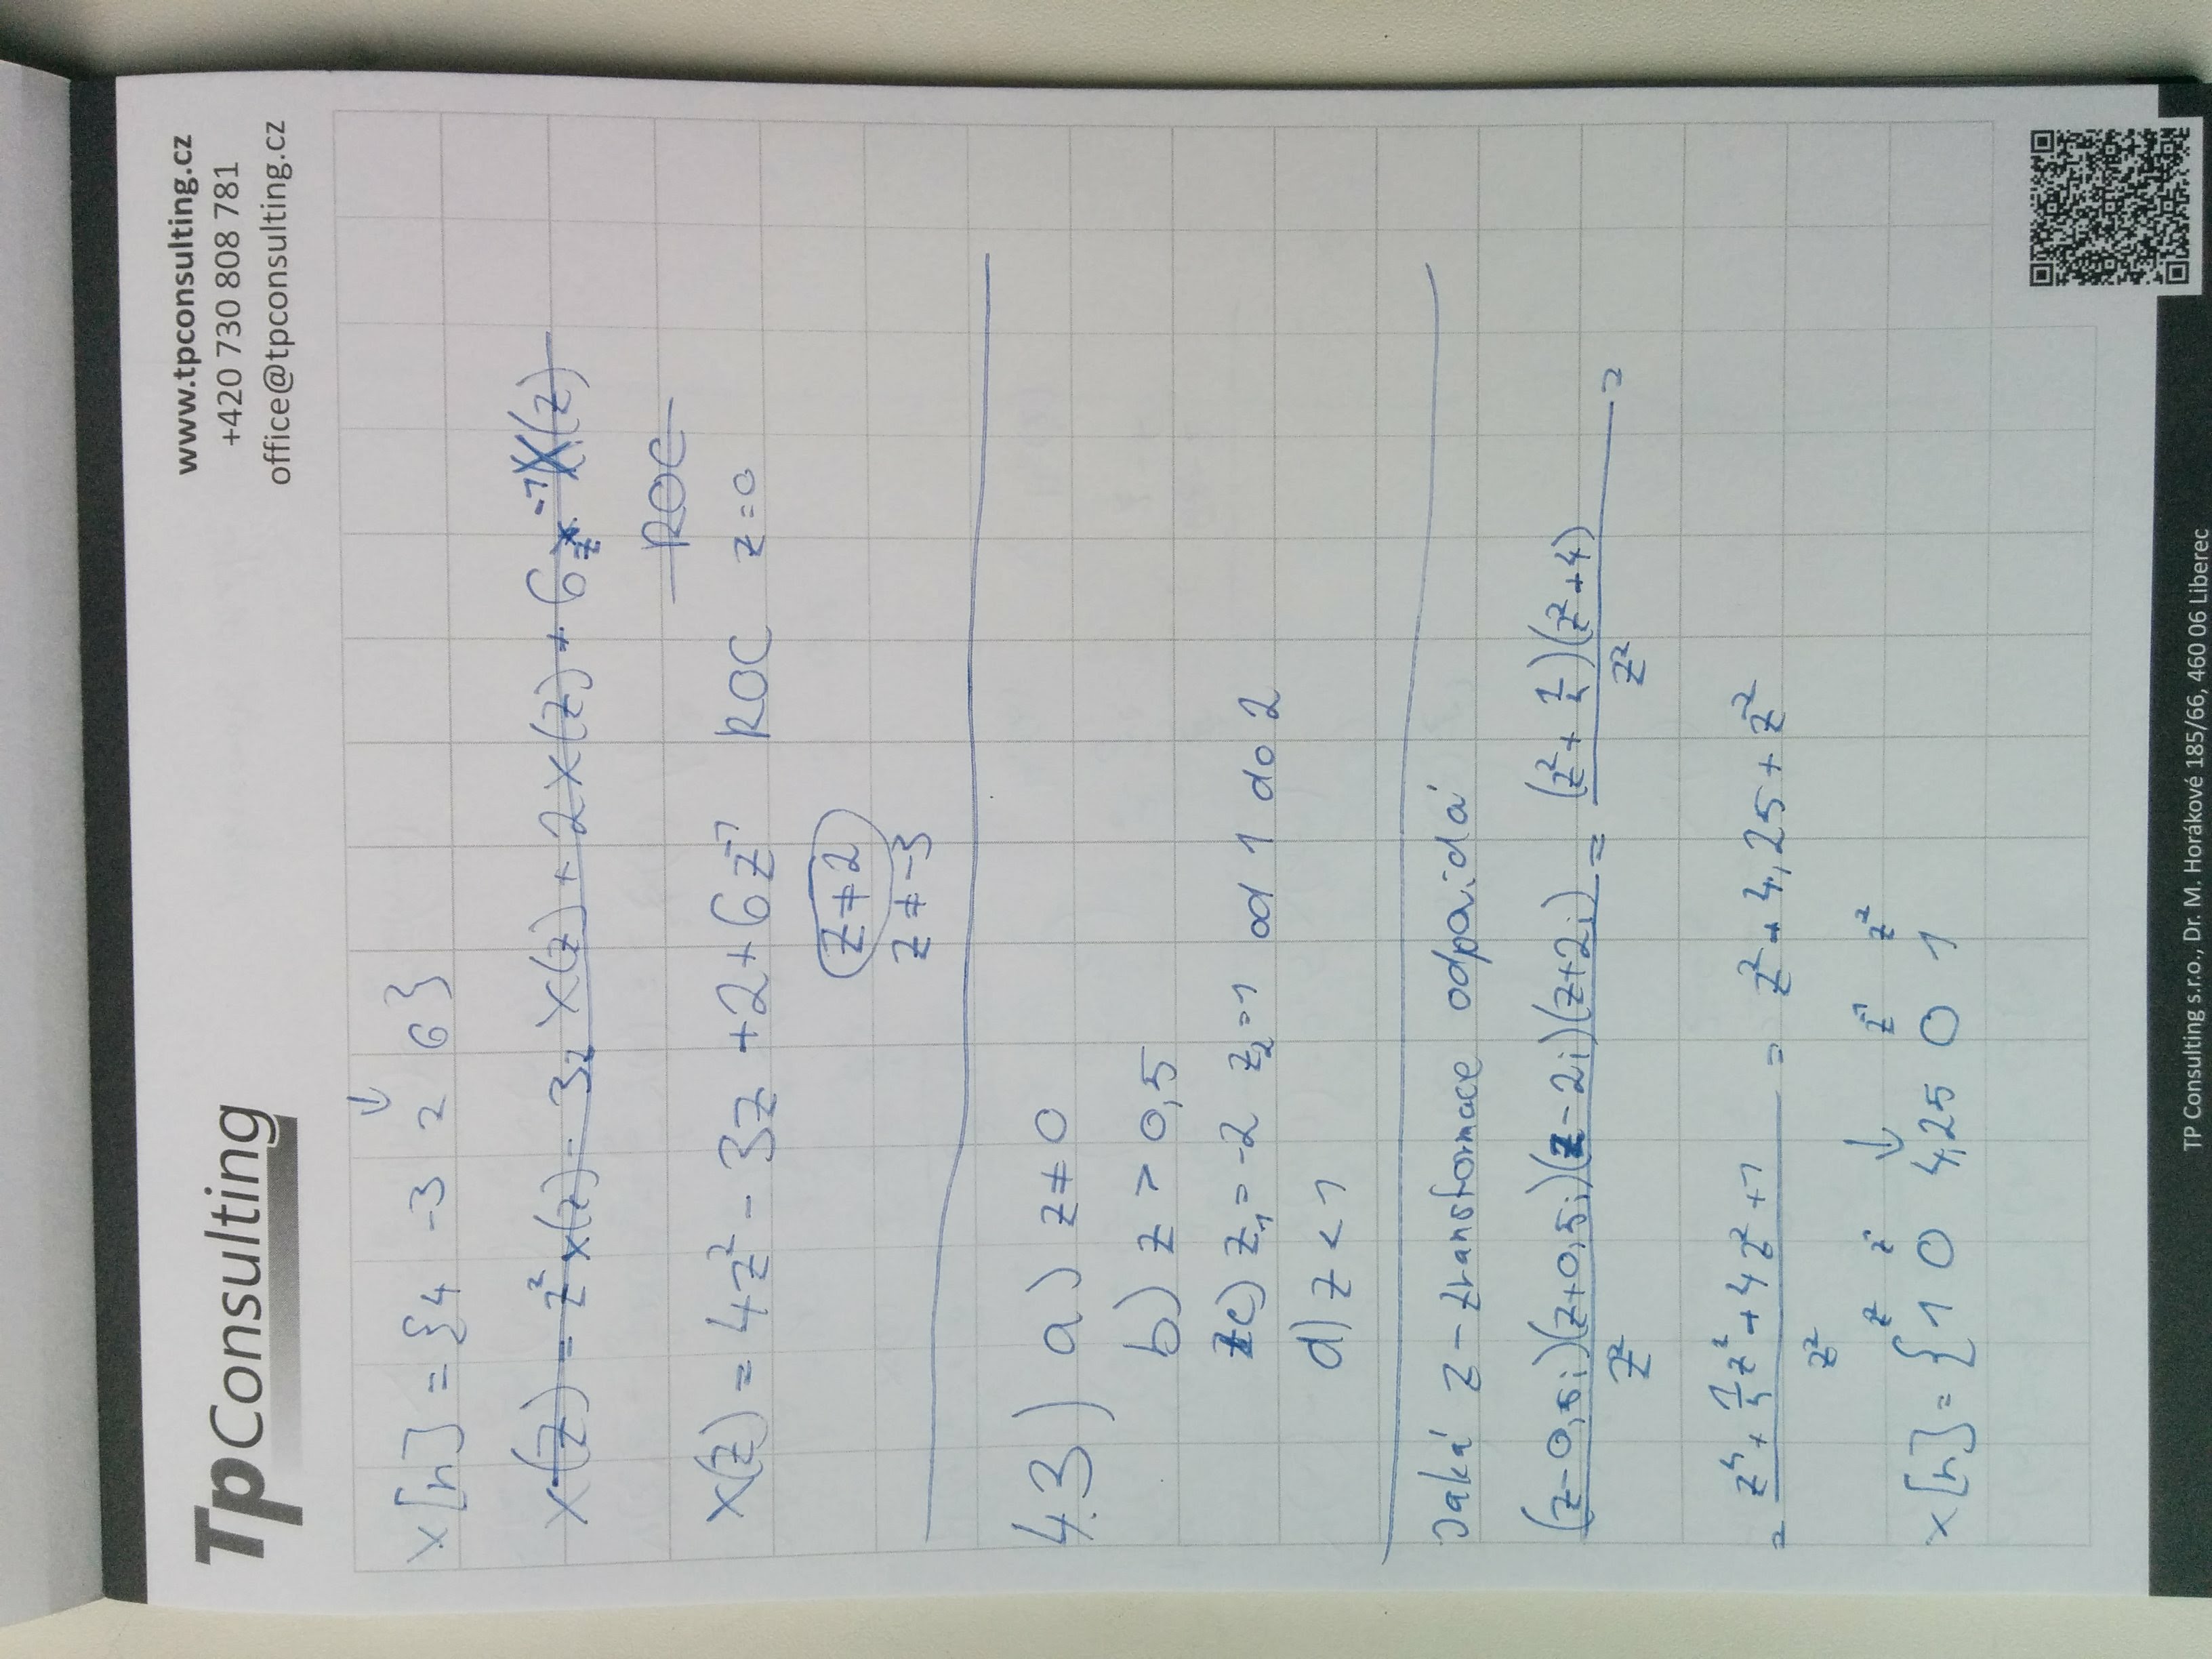 Tp Consulting
www.tpconsulting.cz
+420 730 808 781
office@tpconsulting.cz
x[n] = {4 -3 2 6}
↓
X(z) = z² x(z) - 3z X(z) + 2X(z) + 6z⁻¹X(z)
ROC
X(z) = 4z² - 3z + 2 + 6z⁻¹ ROC z=0
z≠2
z≠-3
4.3) a) z≠0
b) z > 0,5
c) z₁=-2 z₂=1 od 1 do 2
d) z < 1
Jaká z-transformace odpovídá
(z-0,5i)(z+0,5i)(z-2i)(z+2i) / z² = (z²+1/4)(z²+4) / z² =
= z⁴ + 1/4 z² + 4z² + 1 / z² = z² + 4,25 + z⁻²
z² z¹ ↓ z⁻¹ z⁻²
x[n] = {1 0 4,25 0 1
TP Consulting s.r.o., Dr. M. Horákové 185/66, 460 06 Liberec